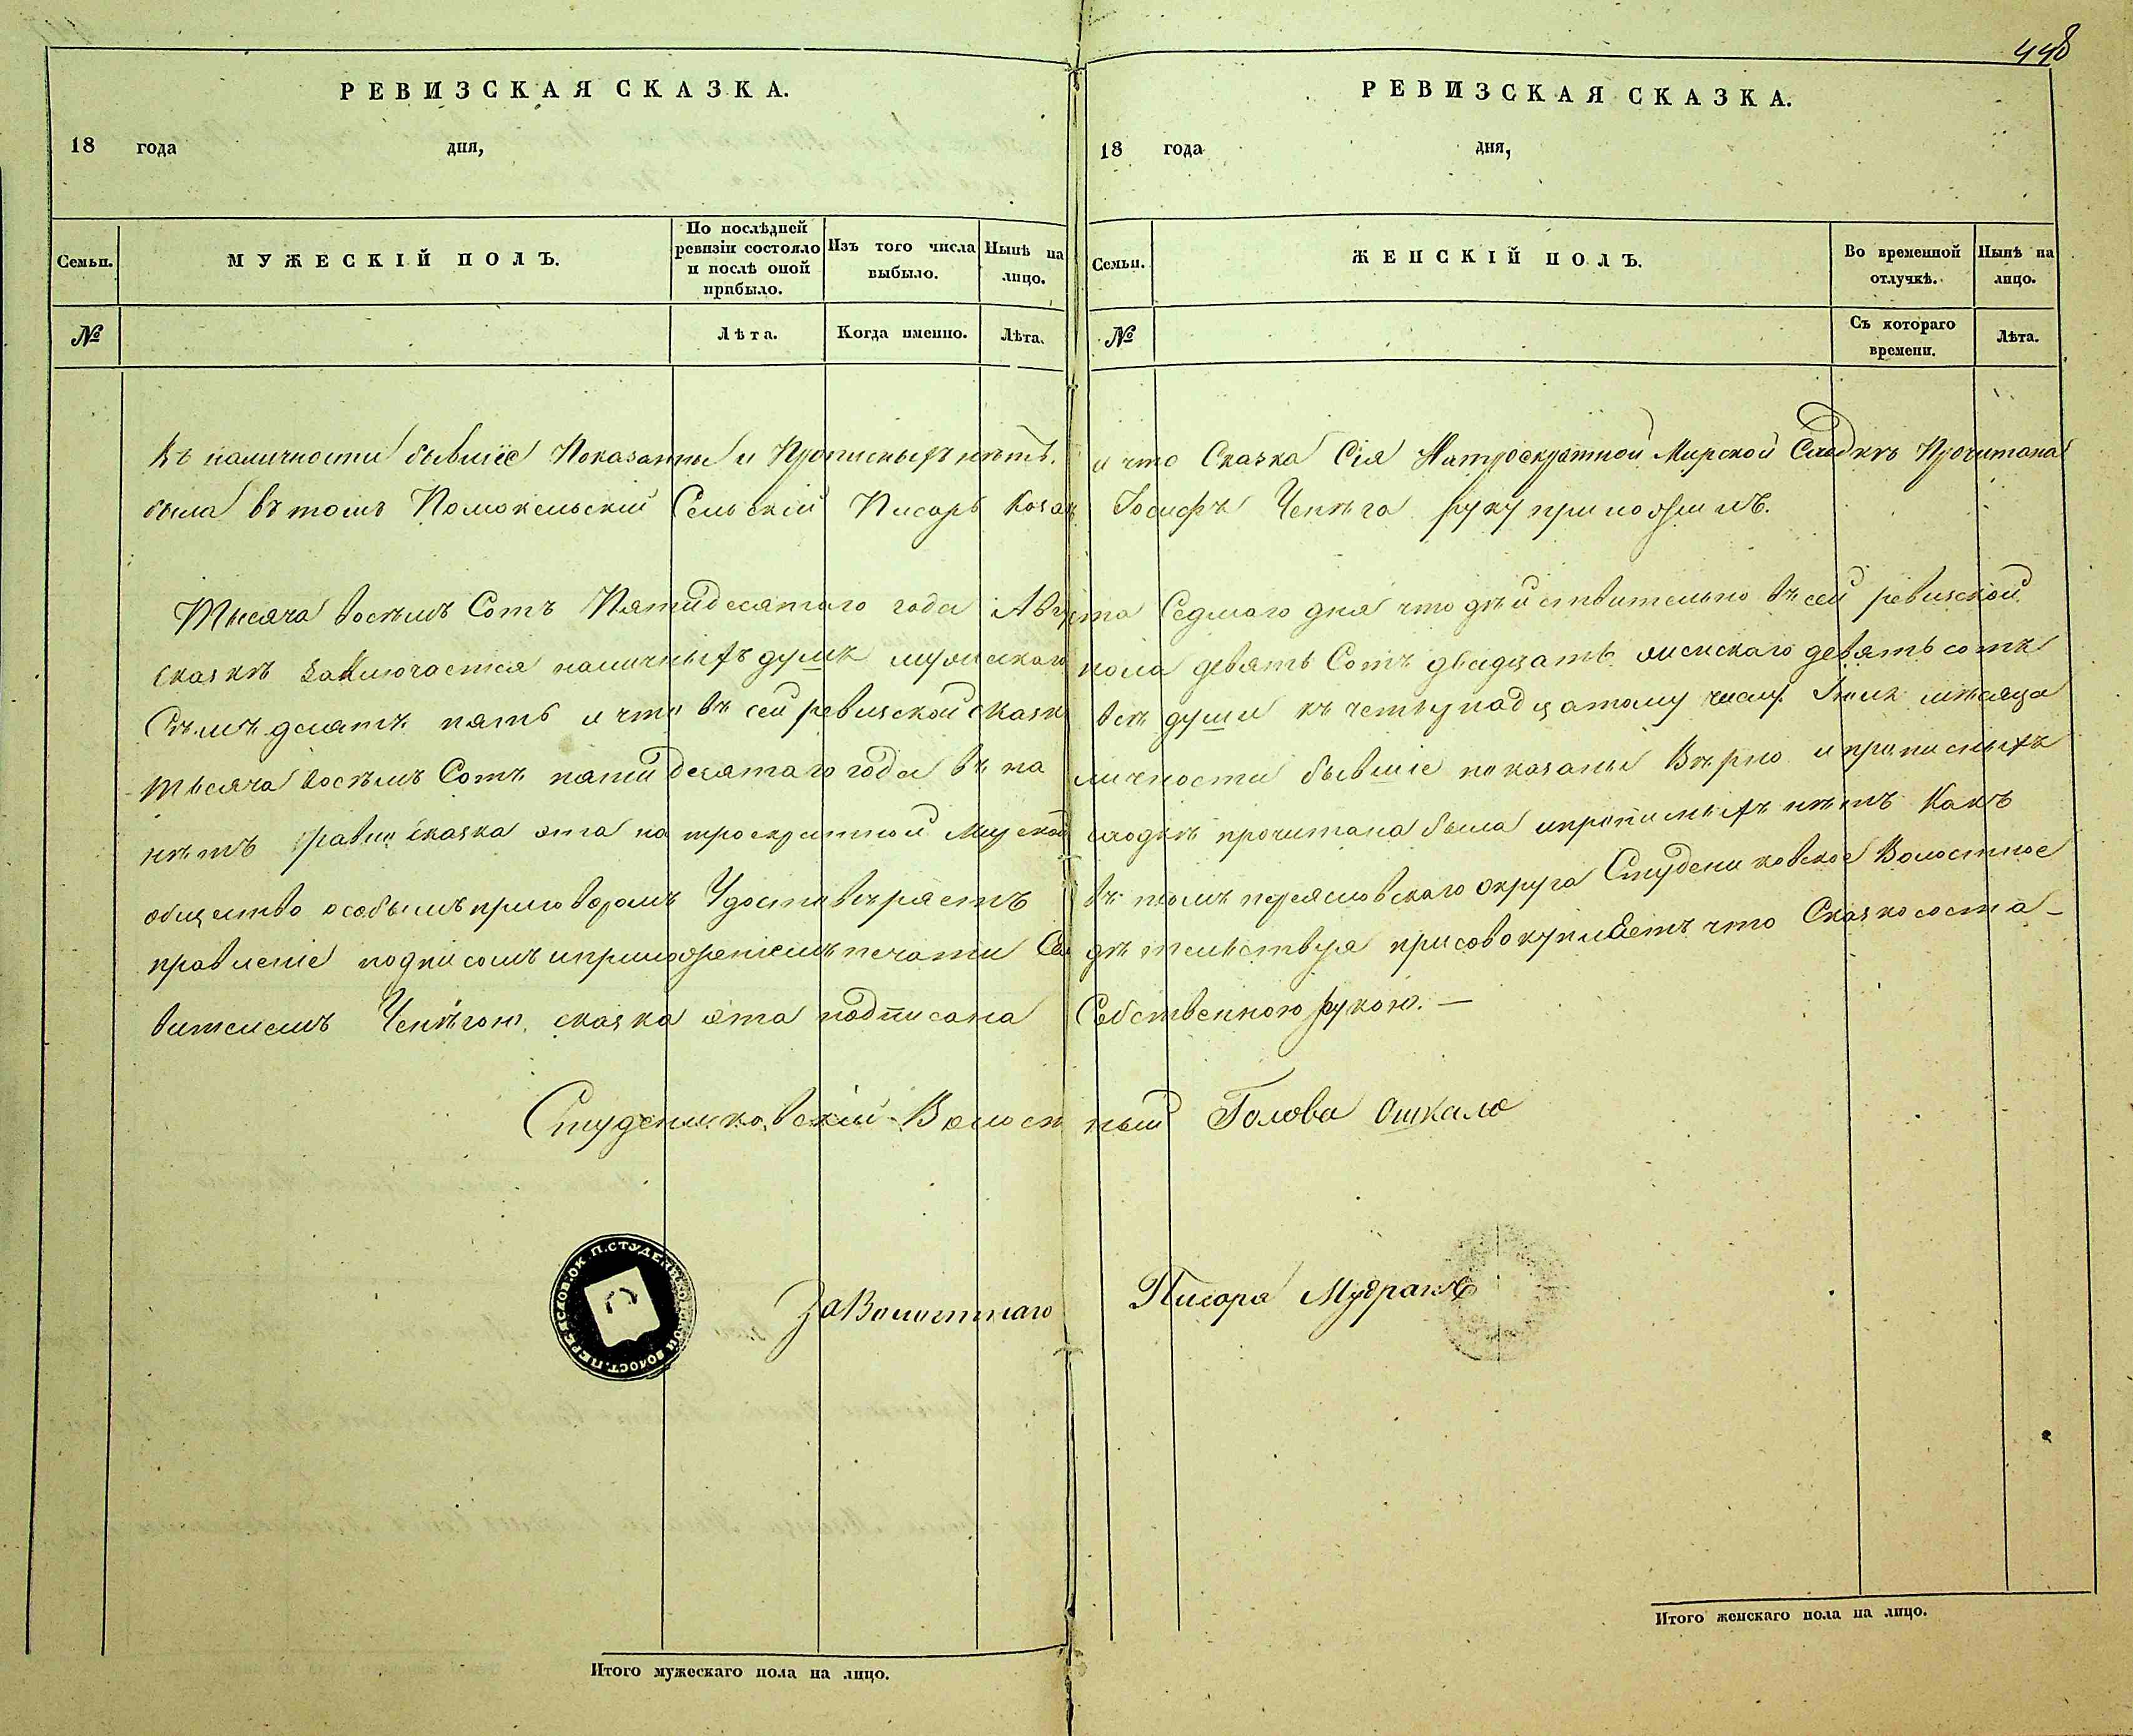 448
РЕВИЗСКАЯ СКАЗКА.
18 года дня,
Семьи.
МУЖЕСКІЙ ПОЛЪ.
По послѣдней ревизіи состояло и послѣ оной прибыло.
Изъ того числа выбыло.
Нынѣ на лицо.
№
Лѣта.
Когда именно.
Лѣта.
РЕВИЗСКАЯ СКАЗКА.
18 года дня,
Семьи.
ЖЕНСКІЙ ПОЛЪ.
Во временной отлучкѣ.
Нынѣ на лицо.
№
Съ котораго времени.
Лѣта.
въ наличности бывшіе Показанны и Прописныхъ нѣтъ. и что Сказка Сія Натроекратной Мирской Сходкѣ Прочитана
была въ томъ Помокельскій Сельскій Писарь Козакъ Іосифъ Чепѣга руку приложилъ.
Тысяча восѣмъ Сотъ Пятидесятого года Августа Седмого дня что дѣйствительно въ сей ревизской
сказкѣ заключается наличныхъ душъ мужескаго пола девять Сотъ двадцать женскаго девять сотъ
Сѣмъдесятъ пять и что въ сей ревизской сказкѣ всѣ души къ четырнадцатому числу Іюня мѣсяца
тысяча восѣмъ Сотъ пятидесятаго года въ наличности бывшіе показаны Вѣрно и прописныхъ
нѣтъ равно сказка эта на троекратной Мирской сходкѣ прочитана была и прописныхъ нѣтъ Какъ
общество особымъ приговоромъ Удостовѣряетъ въ томъ переясловскаго округа Студениковское Волостное
правленіе подписомъ и приложеніемъ печати Свидѣтельствуя присовокупляетъ что Сказкососта-
вителемъ Чепѣгою, сказка эта подписана Собственною рукою. —
Студениковскій Волостный Голова Ошкало
За Волостнаго Писара Мудракъ
ПЕРЕЯСЛОВ. ОК. П. СТУДЕНИКОВСКОЙ ВОЛОСТ.
Итого мужескаго пола на лицо.
Итого женскаго пола на лицо.